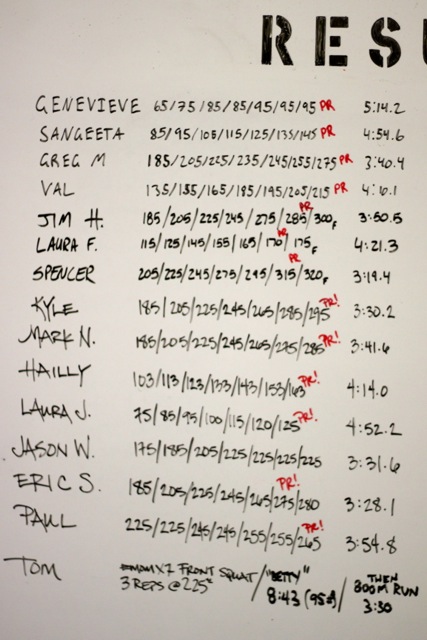 RESU
GENEVIEVE 65/75/85/85/95/95/95 PR 5:14.2
SANGEETA 85/95/105/115/125/135/145 PR 4:54.6
GREG M 185/205/225/235/245/255/275 PR 3:40.4
VAL 135/155/165/185/195/205/215 PR 4:10.1
JIM H. 185/205/225/245/275/285/300F PR 3:50.5
LAURA F. 115/125/145/155/165/170/175F PR 4:21.3
SPENCER 205/225/245/275/295/315/320F PR 3:19.4
KYLE 185/205/225/245/265/285/295 PR! 3:30.2
MARK N. 185/205/225/245/265/275/285 PR! 3:41.6
HAILLY 103/113/123/133/143/153/163 PR! 4:14.0
LAURA J. 75/85/95/100/115/120/125 PR! 4:52.2
JASON W. 175/185/205/225/225/225/225 3:31.6
ERIC S. 185/205/225/245/265/275/280 PR! 3:28.1
PAUL 225/225/245/245/255/255/265 PR! 3:54.8
TOM EMOM X7 FRONT SQUAT / "BETTY" / THEN
3 REPS @ 225# 8:43 (95#) 800M RUN
3:30